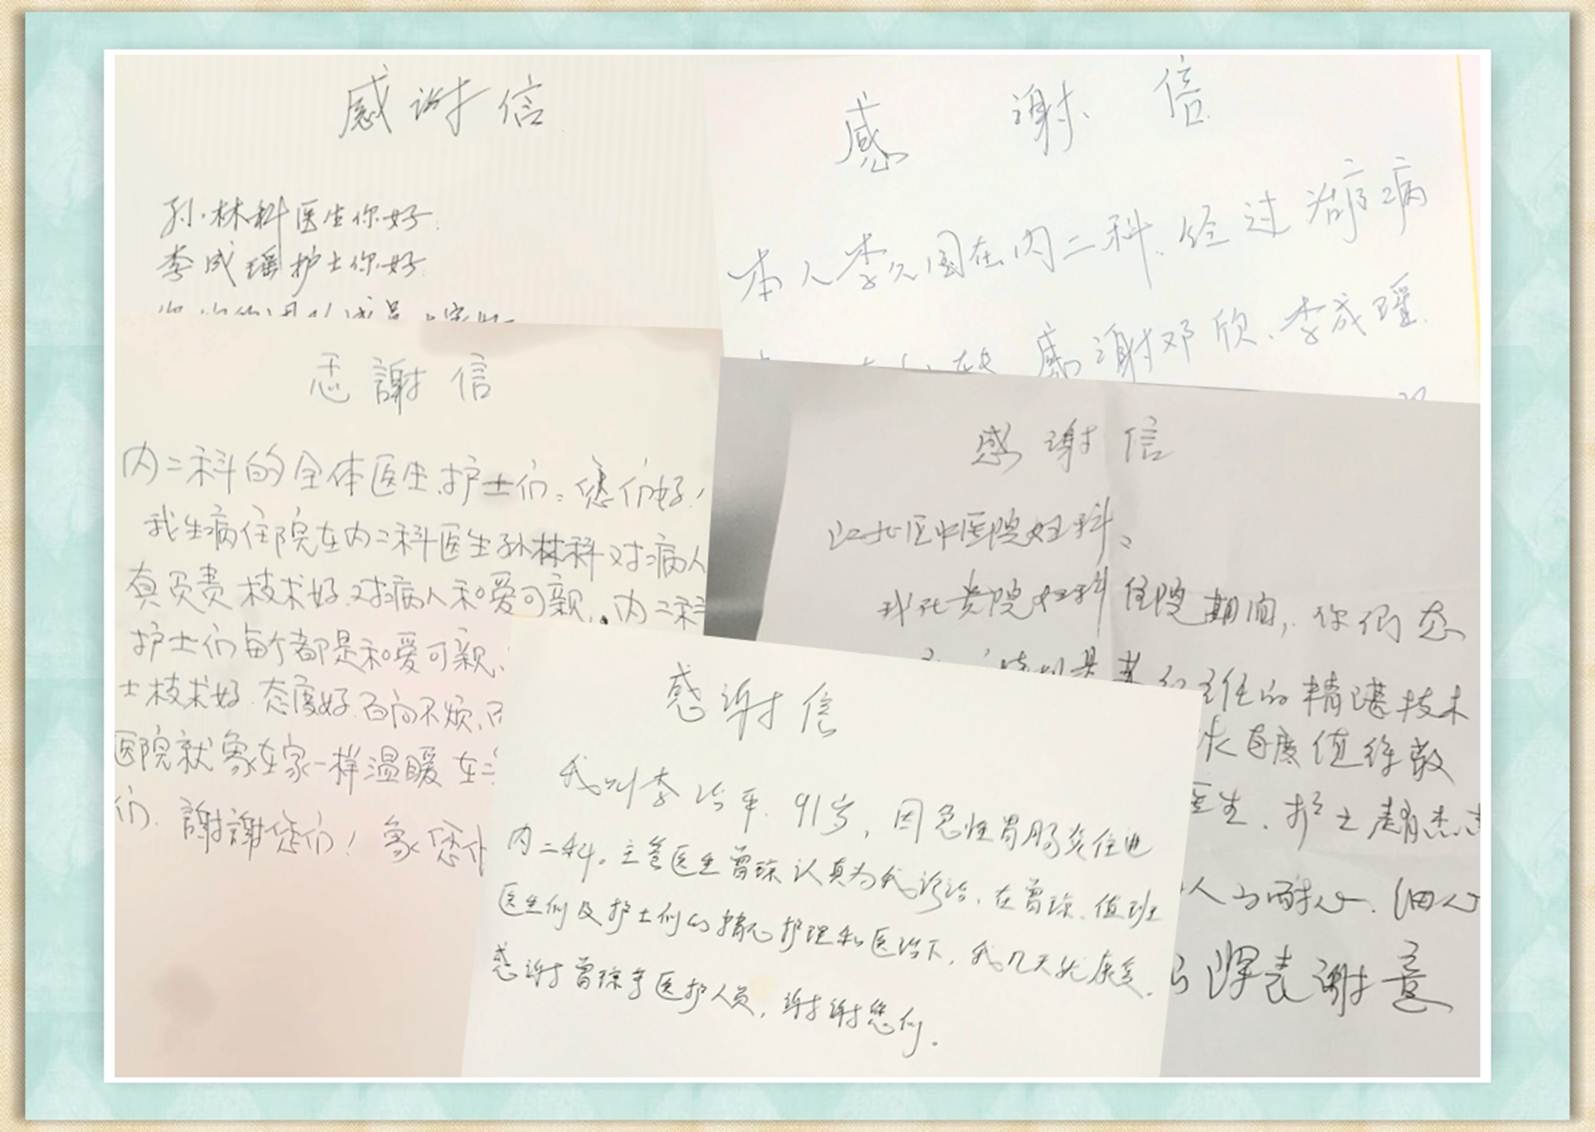 感谢信
孙林科医生你好
李成瑶护士你好
感 谢 信
本人李久国在内二科.经过治疗病
感谢邓欣、李成瑶.
感謝信
内二科的全体医生.护士们:您们好!
我生病住院在内二科医生孙林科对病人
真负责技术好.对病人和爱可亲.内二科
护士们每个都是和爱可亲.
士技术好.态度好.百问不烦.
医院就象在家一样温暖 在
们.謝謝您们!象您
感谢信
江北区中医院妇科:
我在贵院妇科住院期间,你们态
主任的精湛技术
态度值得敬
医生.护士
人的耐心.细心
深表谢意
感谢信
我叫李治平.91岁,因急性胃肠炎住进
内二科。主管医生曾琼认真为我诊治.在曾琼.值班
医生们及护士们的精心护理和医治下.我几天就康复.
感谢曾琼等医护人员,谢谢您们.